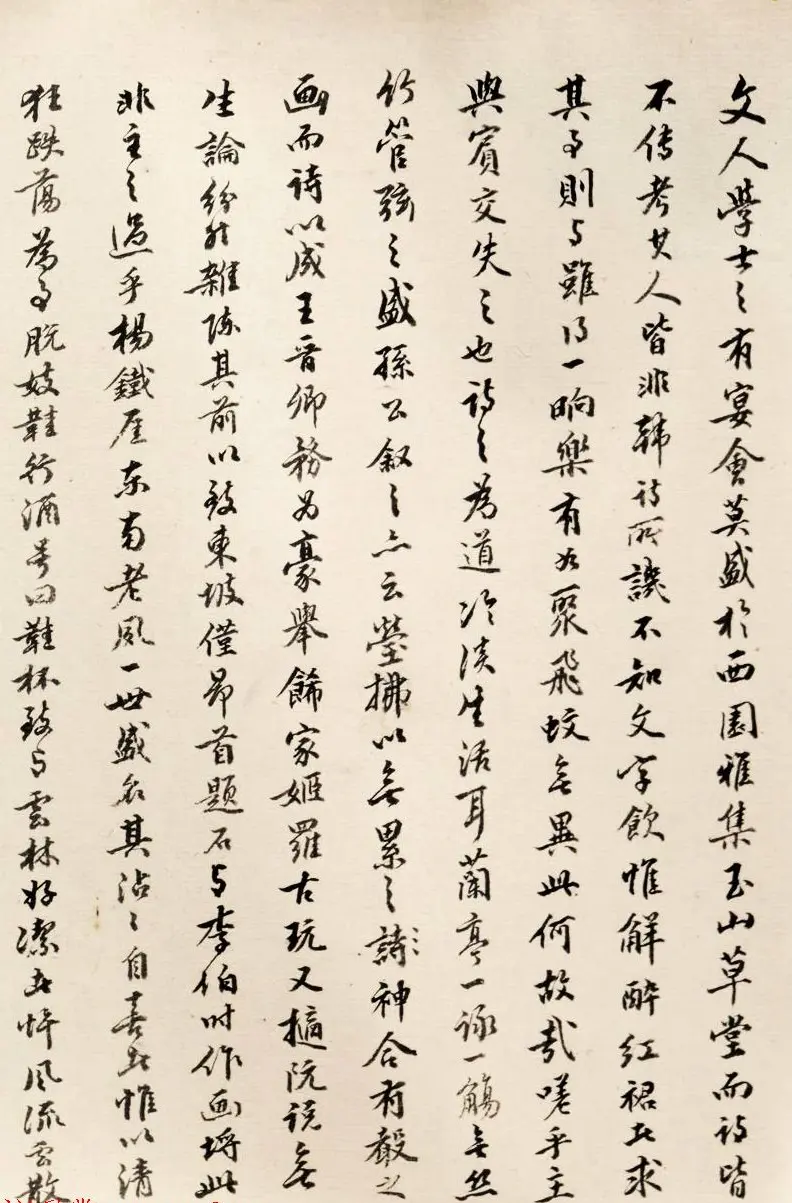 文人學士之有宴會莫盛於西園雅集玉山草堂而詩皆
不傳考其人皆非韩詩所譏不知文字飲惟解醉紅裙者求
其事則与雖得一晌樂有如聚飛蚊無異此何故哉嗟乎主
與賓交失之也詩之為道冷淡生活耳蘭亭一詠一觴無丝
竹管弦之盛孫公叙之亦云瑩拂以無累之詩神合有聲之
画而詩以成王晋卿務为豪舉飾家姬羅古玩又摭阮说無
生論纷然雜陈其前以致東坡僅昂首題石与李伯时作画埒此
非主之過乎楊鐵厓东南老宿一世盛名其沾沾自喜者惟以清
狂跌蕩為事脱妓鞋行酒号曰鞋杯致与雲林好潔者忤風流雲散